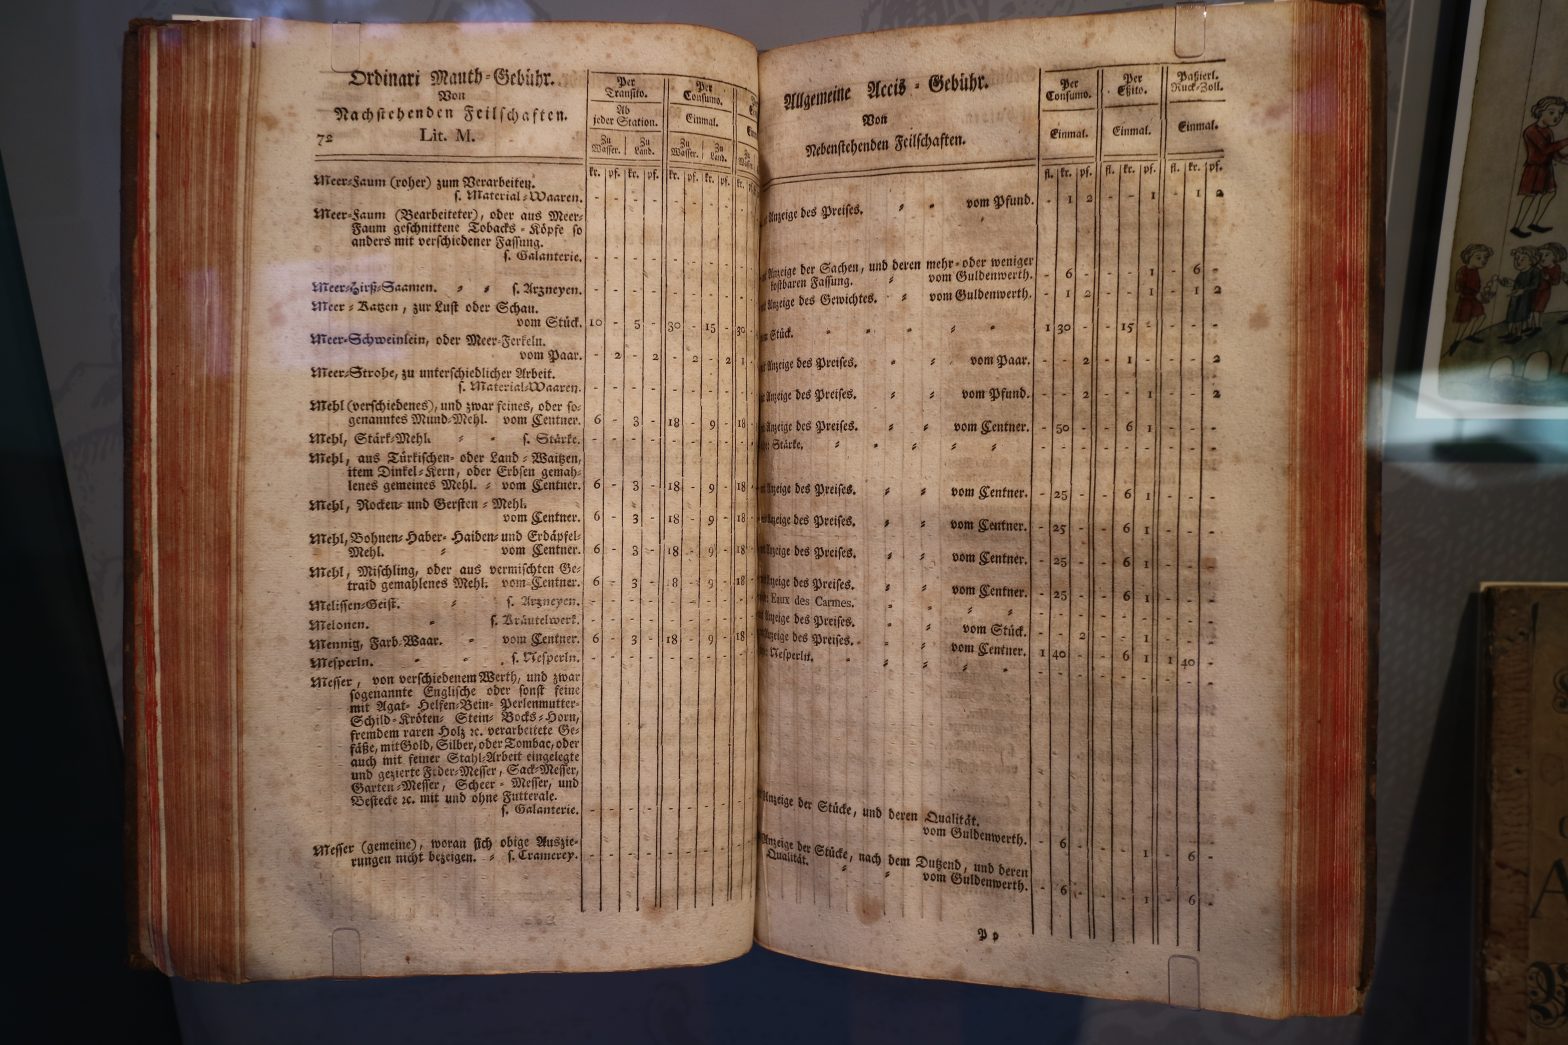 Ordinari Mauth-Gebühr.
Von
Nachstehenden Feilschaften.
72 Lit. M.
Per Transito. Per Consumo.
Ab jeder Station. Einmal.
Zu Wasser. Zu Land. Zu Wasser. Zu Land.
fr. pf. fr. pf. fr. pf. fr. pf.
Meer-Faum (roher) zum Verarbeiten.
s. Material-Waaren.
Meer-Faum (Bearbeiteter), oder aus Meer-
Faum geschnittene Tobacks-Köpfe so
anders mit verschiedener Fassung.
s. Galanterie.
Meer-Hirß-Saamen. s. Arzneyen.
Meer-Katzen, zur Lust oder Schau.
vom Stück. 10 - 5 - 30 - 15 - 30
Meer-Schweinlein, oder Meer-Ferkeln.
vom Paar. - 2 - 2 - 2 - 2 1
Meer-Strohe, zu unterschiedlicher Arbeit.
s. Material-Waaren.
Mehl (verschiedenes), und zwar feines, oder so-
genanntes Mund-Mehl. vom Centner. 6 - 3 - 18 - 9 - 18
Mehl, Stärk-Mehl. s. Stärke.
Mehl, aus Türkischen- oder Land-Waitzen,
item Dinkel-Kern, oder Erbsen gemah-
lenes gemeines Mehl. vom Centner. 6 - 3 - 18 - 9 - 18
Mehl, Rocken- und Gersten-Mehl.
vom Centner. 6 - 3 - 18 - 9 - 18
Mehl, Bohnen-Haber-Haiden-und Erdäpfel-
Mehl. vom Centner. 6 - 3 - 18 - 9 - 18
Mehl, Mischling, oder aus vermischten Ge-
traid gemahlenes Mehl. vom Centner. 6 - 3 - 18 - 9 - 18
Melissen-Geist. s. Arzneyen.
Melonen. s. Kräutelwerk.
Mennig, Farb-Waar. vom Centner. 6 - 3 - 18 - 9 - 18
Mesperln. s. Nesperln.
Messer, von verschiedenem Werth, und zwar
sogenannte Englische oder sonst feine
mit Agat- Helfen-Bein- Perlenmutter-
Schild-Kröten- Stein- Bocks-Horn,
fremden raren Holz ꝛc. verarbeitete Ge-
fäße, mit Gold, Silber, oder Tombac, oder
auch mit feiner Stahl-Arbeit eingelegte
und gezierte Feder-Messer, Sack-Messer,
Garten-Messer, Scheer-Messer, und
Bestecke ꝛc. mit und ohne Futterale.
s. Galanterie.
Messer (gemeine), woran sich obige Auszie-
rungen nicht bezeigen. s. Cramerey.
Allgemeine Accis-Gebühr.
Von
Nebenstehenden Feilschaften.
Per Consumo. Per Eßito. Paßierl. Ruck-Zoll.
Einmal. Einmal. Einmal.
fl. kr. pf. fl. kr. pf. fl. kr. pf.
Anzeige des Preises. vom Pfund. - 1 2 - - 1 - 1 2
Anzeige der Sachen, und deren mehr- oder weniger
kostbaren Fassung. vom Guldenwerth. - 6 - - - 1 - 6 -
Anzeige des Gewichtes. vom Guldenwerth. - 1 2 - - 1 - 1 2
Stück. 1 30 - - 15 - - - -
Anzeige des Preises. vom Paar. - 2 - - 1 - - - 2
Anzeige des Preises. vom Pfund. - 2 - - - 1 - - 2
Anzeige des Preises. vom Centner. - 50 - - 6 1 - - -
Stärke.
Anzeige des Preises. vom Centner. - 25 - - 6 1 - - -
Anzeige des Preises. vom Centner. - 25 - - 6 1 - - -
Anzeige des Preises. vom Centner. - 25 - - 6 1 - - -
Anzeige des Preises. vom Centner. - 25 - - 6 1 - - -
Eaux des Carmes.
Anzeige des Preises. vom Stück. - 2 - - - 1 - - -
Anzeige des Preises. vom Centner. 1 40 - - 6 1 1 40 -
Nesperln.
Anzeige der Stücke, und deren Qualität.
vom Guldenwerth. - 6 - - - 1 - 6 -
Anzeige der Stücke, nach dem Dutzend, und deren
Qualität. vom Guldenwerth. - 6 - - - 1 - 6 -
P p